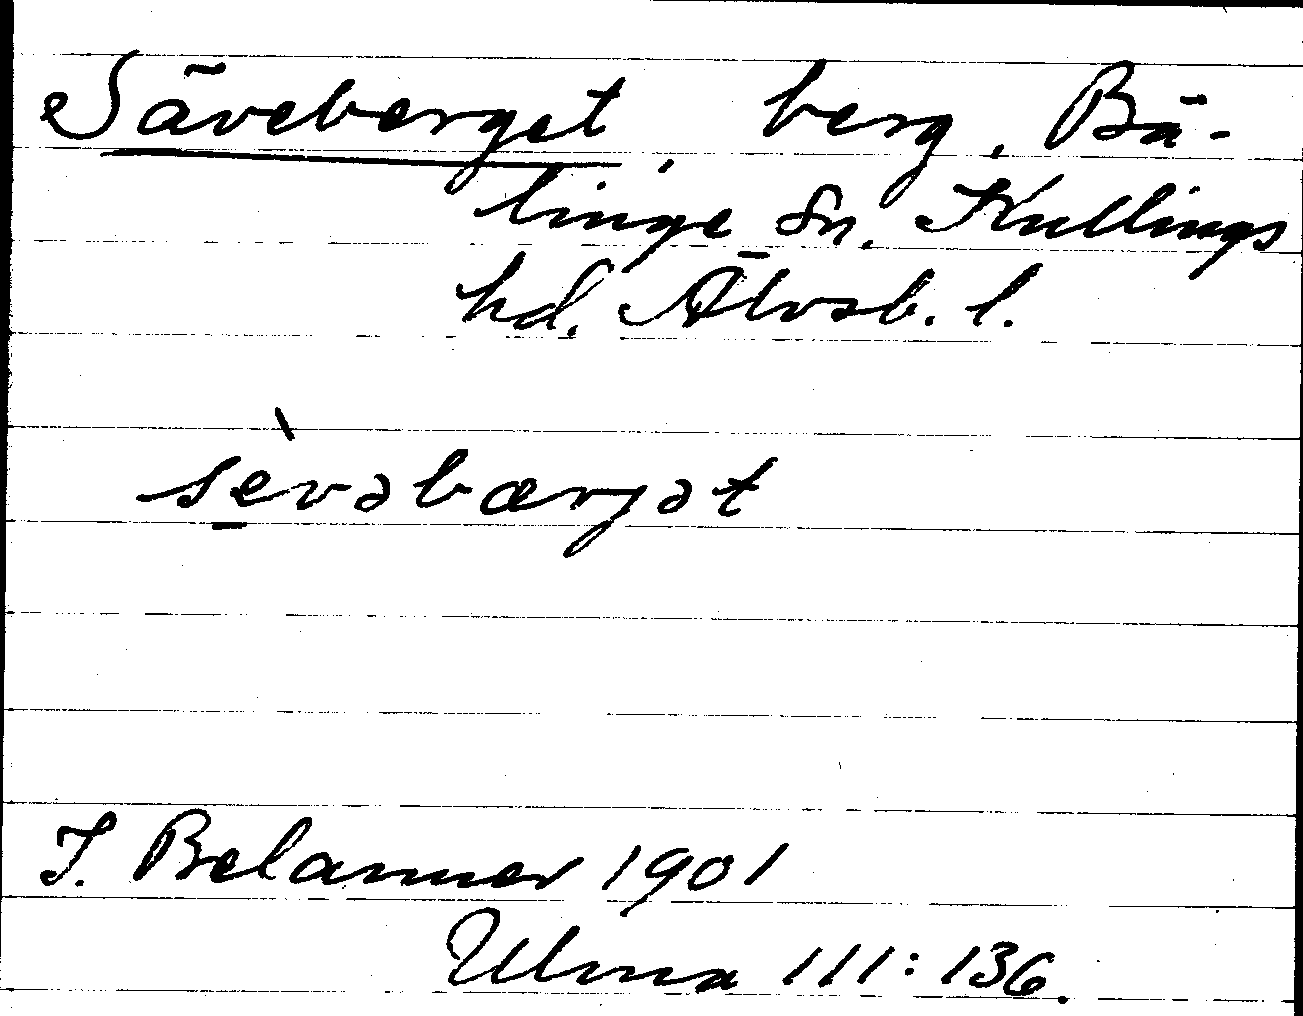 Säveberget, berg, Bä-
linge Sn. Kullings
hd. Älvsb. l.
sèvəbærjət
J. Belanner 1901
Ulma 111:136.